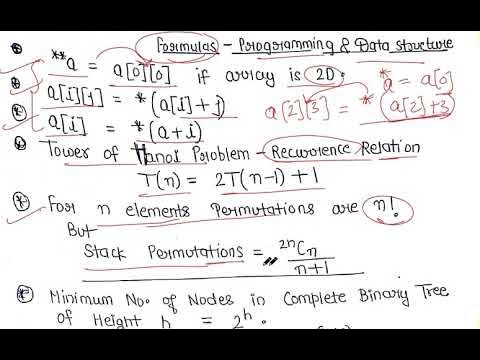 Formulas - Programming & Data structure
**a = a[0][0] if array is 2D.
*a = a[0]
a[i][j] = *(a[i]+j)
a[2][3] = *(a[2]+3)
a[i] = *(a+i)
Tower of Hanoi Problem - Recurrence Relation
T(n) = 2T(n-1)+1
For n elements Permutations are n!
But
Stack Permutations = 2nCn/n+1
Minimum No. of Nodes in Complete Binary Tree
of Height h = 2^h.